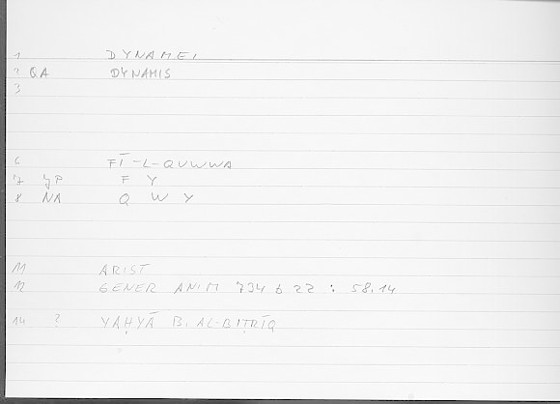 1 DYNAMEI
2 QA DYNAMIS
3
6 FĪ-L-QUWWA
7 YP F Y
8 NA Q W Y
11 ARIST
12 GENER ANIM 734 b 22 : 58.14
14 ? YAḤYĀ B. AL-BIṬRĪQ